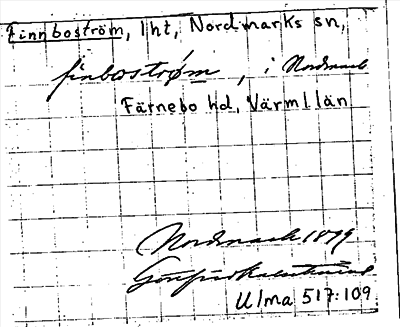 Finnboström, lht, Nordmarks sn,
finboström, i Nordmark
Färnebo hd, Värml län
Nordmark 1899
Ulma 517:109